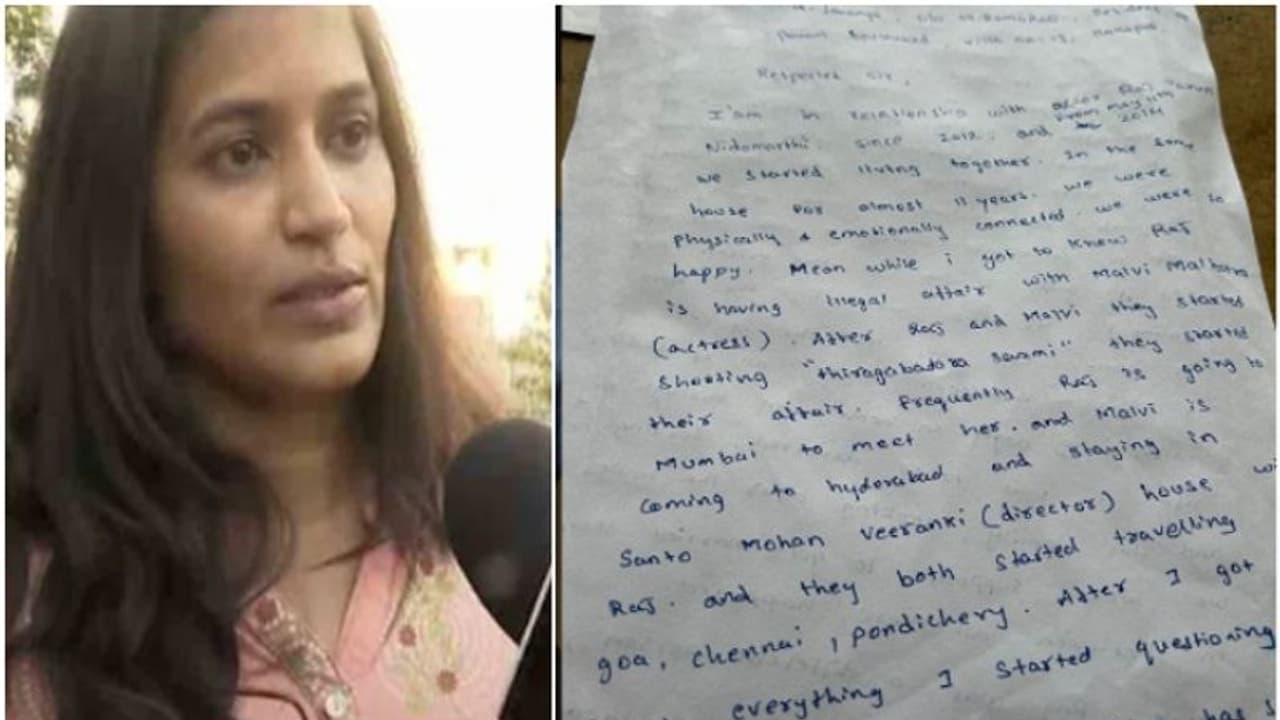 Respected sir,
I'am in relationship with actor Raj Tarun
Nidamarthi since 2012. and from may 11th 2014
we started living together. In the same
house for almost 11 years. we were
physically & emotionally connected. we were so
happy. Mean while i got to know Raj
is having illegal affair with Malvi Malhotra
(actress). After Raj and Malvi they started
shooting "thiragabadara saami" they started
their affair. Frequently Raj is going to
Mumbai to meet her. and Malvi is
coming to hyderabad and staying in
Santo Mohan Veeranki (director) house wi
Raj. and they both started travelling
goa, chennai, pondichery. After I got
everything I started questioning
has s